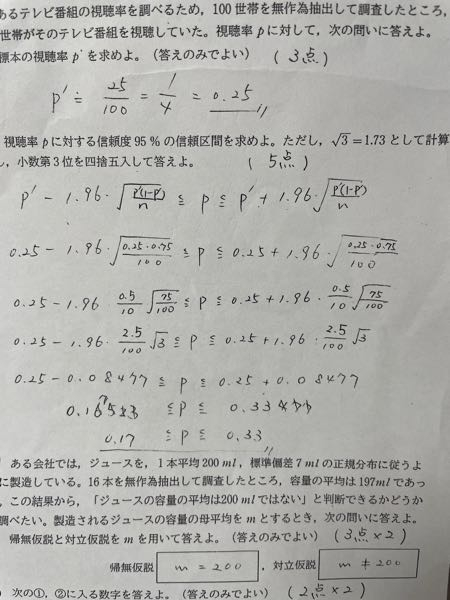 あるテレビ番組の視聴率を調べるため，100世帯を無作為抽出して調査したところ，
世帯がそのテレビ番組を視聴していた。視聴率 p に対して，次の問いに答えよ。
標本の視聴率 p' を求めよ。（答えのみでよい） (3点)
p' ≒ 25/100 = 1/4 = 0.25
視聴率 p に対する信頼度 95 % の信頼区間を求めよ。ただし，√3 = 1.73 として計算
し，小数第3位を四捨五入して答えよ。 (5点)
p' - 1.96・√(p'(1-p')/n) ≦ p ≦ p' + 1.96・√(p'(1-p')/n)
0.25 - 1.96・√(0.25・0.75/100) ≦ p ≦ 0.25 + 1.96・√(0.25・0.75/100)
0.25 - 1.96・0.5/10 √(75/100) ≦ p ≦ 0.25 + 1.96・0.5/10 √(75/100)
0.25 - 1.96・2.5/100 √3 ≦ p ≦ 0.25 + 1.96・2.5/100 √3
0.25 - 0.08477 ≦ p ≦ 0.25 + 0.08477
≦ p ≦
0.17 ≦ p ≦ 0.33
ある会社では，ジュースを，1本平均 200 ml，標準偏差 7 ml の正規分布に従うよ
に製造している。16本を無作為抽出して調査したところ，容量の平均は 197ml であっ
，この結果から，「ジュースの容量の平均は200 ml ではない」と判断できるかどうか
調べたい。製造されるジュースの容量の母平均を m とするとき，次の問いに答えよ。
帰無仮説と対立仮説を m を用いて答えよ。（答えのみでよい） (3点×2)
帰無仮説 m = 200 ，対立仮説 m ≠ 200
次の①，②に入る数字を答えよ。（答えのみでよい） (2点×2)